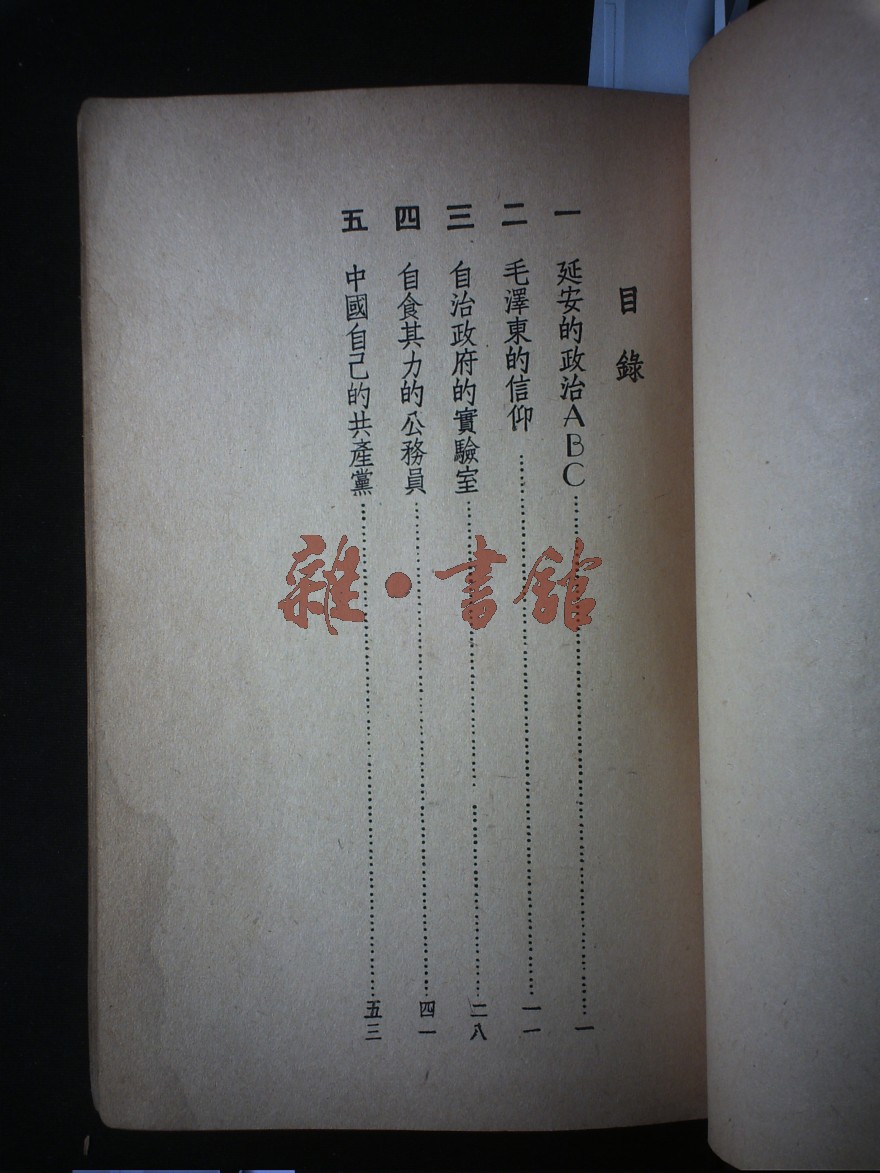 目錄
一 延安的政治ABC……一
二 毛澤東的信仰……一一
三 自治政府的實驗室……二八
四 自食其力的公務員……四一
五 中國自己的共產黨……五三
雜•書館